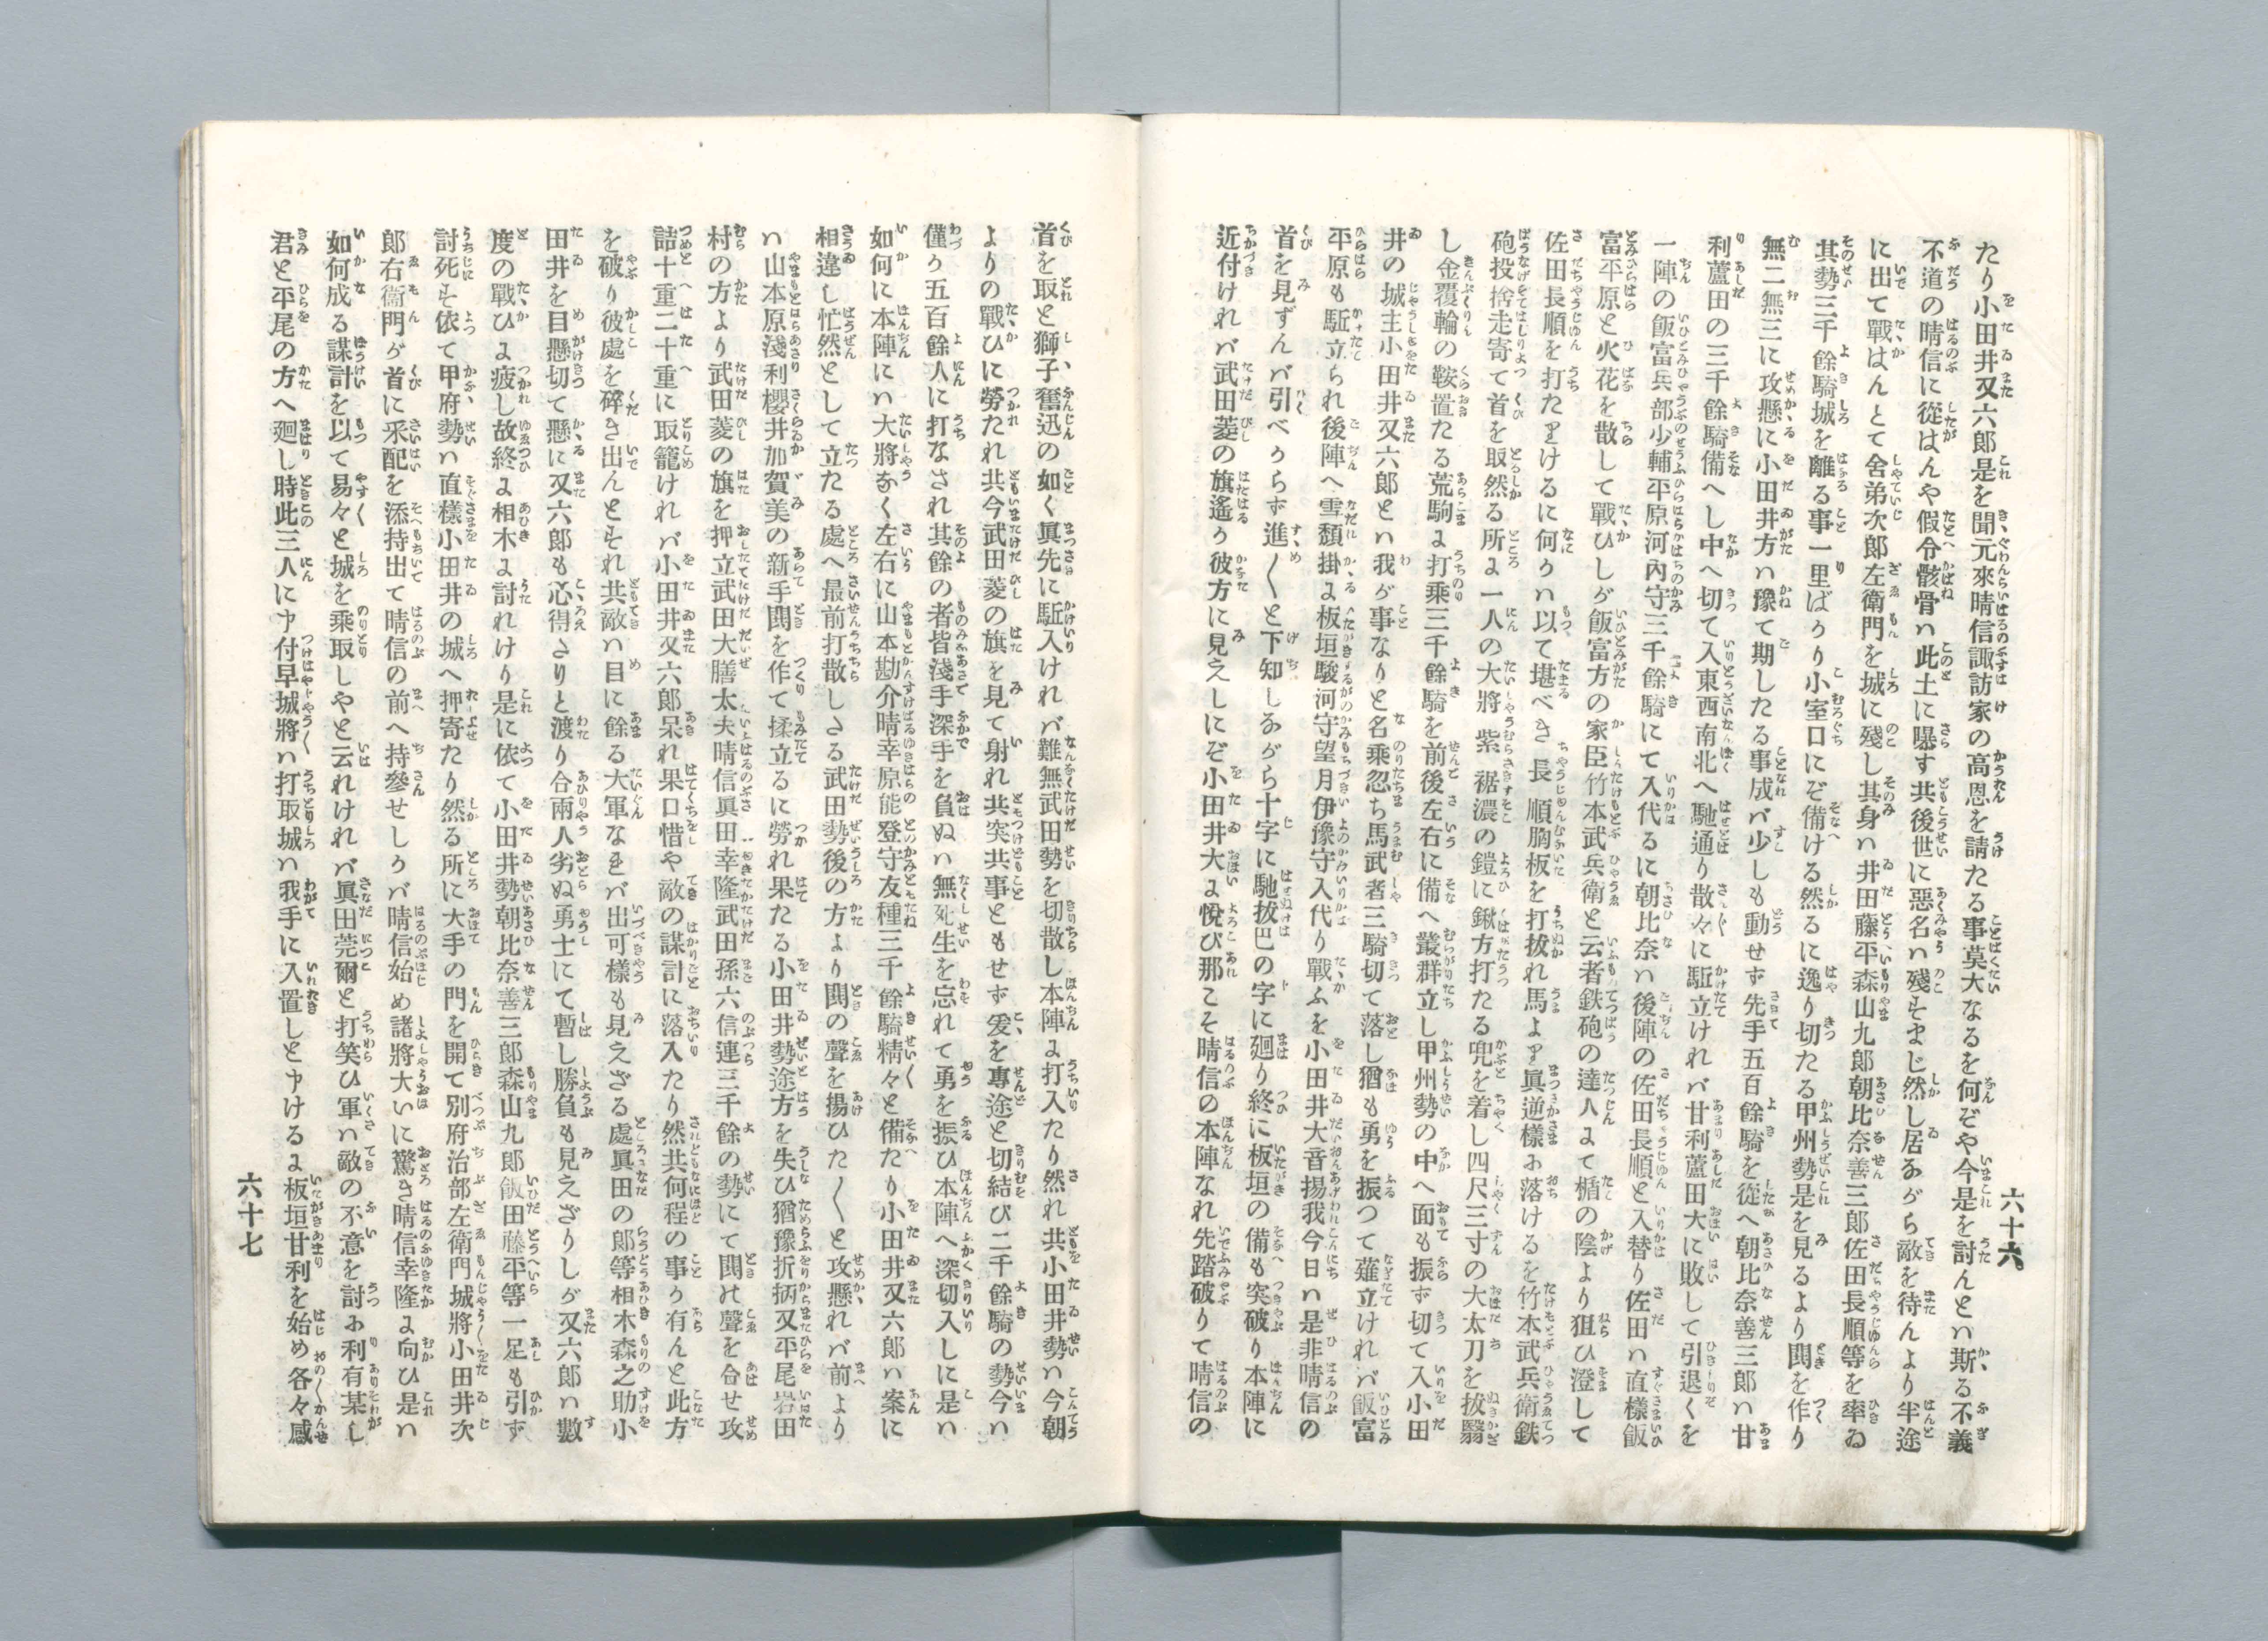 六十六
たり小田井又六郎是を聞元來晴信諏訪家の高恩を請たる事莫大なるを何ぞや今是を討んとハ斯る不義
不道の晴信に從はんや假令骸骨ハ此土に曝す共後世に惡名ハ殘すまじ然し居ながら敵を待んより半途
に出て戰はんとて舍弟次郎左衛門を城に殘し其身ハ井田藤平森山九郎朝比奈善三郎佐田長順等を率ゐ
其勢三千餘騎城を離る事一里ばかり小室口にぞ備ける然るに逸り切たる甲州勢是を見るより閧を作り
無二無三に攻懸に小田井方ハ豫て期したる事成バ少しも動せず先手五百餘騎を從へ朝比奈善三郎ハ甘
利蘆田の三千餘騎備へし中へ切て入東西南北へ馳通り散々に駈立けれバ甘利蘆田大に敗して引退くを
一陣の飯富兵部少輔平原河內守三千餘騎にて入代るに朝比奈ハ後陣の佐田長順と入替り佐田ハ直樣飯
富平原と火花を散して戰ひしが飯富方の家臣竹本武兵衛と云者鉄砲の達人まて楯の陰より狙ひ澄して
佐田長順を打たりけるに何かハ以て堪べき長順胸板を打拔れ馬より眞逆樣お落けるを竹本武兵衛鉄
砲投捨走寄て首を取然る所よ一人の大將紫裾濃の鎧に鍬方打たる兜を着し四尺三寸の大太刀を拔翳
し金覆輪の鞍置たる荒駒よ打乘三千餘騎を前後左右に備へ叢群立し甲州勢の中へ面も振ず切て入小田
井の城主小田井又六郎とハ我が事なりと名乘忽ち馬武者三騎切て落し猶も勇を振つて薙立けれバ飯富
平原も駈立られ後陣へ雪頽掛よ板垣駿河守望月伊豫守入代り戰ふを小田井大音揚我今日ハ是非晴信の
首を見ずんバ引べからず進め〱と下知しながら十字に馳拔巴の字に廻り終に板垣の備も突破り本陣に
近付けれバ武田菱の旗遙か彼方に見えしにぞ小田井大よ悅び那こそ晴信の本陣なれ先踏破りて晴信の
首を取と獅子奮迅の如く眞先に駈入けれバ難無武田勢を切散し本陣よ打入たり然れ共小田井勢ハ今朝
よりの戰ひに勞たれ共今武田菱の旗を見て射れ共突共事ともせず爰を專途と切結び二千餘騎の勢今ハ
僅か五百餘人に打なされ其餘の者皆淺手深手を負ぬハ無死生を忘れて勇を振ひ本陣へ深切入しに是ハ
如何に本陣にハ大將なく左右に山本勘介晴幸原能登守友種三千餘騎精々と備たり小田井又六郎ハ案に
相違し忙然として立たる處へ最前打散しさる武田勢後の方より閧の聲を揚ひた〱と攻懸れバ前より
ハ山本原淺利櫻井加賀美の新手閧を作て揉立るに勞れ果たる小田井勢途方を失ひ猶豫折柄又平尾岩田
村の方より武田菱の旗を押立武田大膳太夫晴信眞田幸隆武田孫六信連三千餘の勢にて閧の聲を合せ攻
詰十重二十重に取籠けれバ小田井又六郎呆れ果口惜や敵の謀計に落入たり然共何程の事か有んと此方
を破り彼處を碎き出んとすれ共敵ハ目に餘る大軍なれバ出可樣も見えざる處眞田の郎等相木森之助小
田井を目懸切て懸に又六郎も心得さりと渡り合兩人劣ぬ勇士にて暫し勝負も見えざりしが又六郎ハ數
度の戰ひよ疲し故終よ相木よ討れけり是に依て小田井勢朝比奈善三郎森山九郎飯田藤平等一足も引ず
討死す依て甲府勢ハ直樣小田井の城へ押寄たり然る所に大手の門を開て別府治部左衛門城將小田井次
郎右衞門が首に釆配を添持出て晴信の前へ持參せしかバ晴信始め諸將大いに驚き晴信幸隆よ向ひ是ハ
如何成る謀計を以て易々と城を乘取しやと云れけれバ眞田莞爾と打笑ひ軍ハ敵の不意を討お利有某し
君と平尾の方へ廻し時此三人に申付早城將ハ打取城ハ我手に入置しと申けるよ板垣甘利を始め各々感
六十七